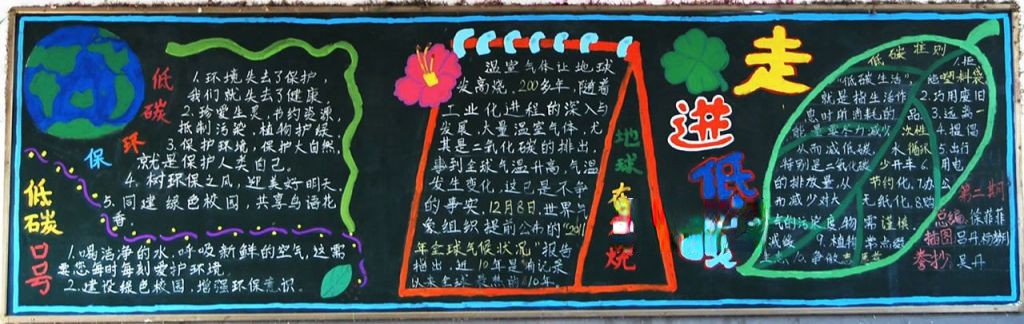 低碳环保
1.环境失去了保护,
我们就失去了健康
2.珍爱生灵,节约资源,
抵制污染,植物护绿
3.保护环境,保护大自然,
就是保护人类自己。
4.树环保之风,迎美好明天
5.同建绿色校园,共享鸟语花
香。
低碳口号
1.喝洁净的水,呼吸新鲜的空气,这需
要您每时每刻爱护环境
2.建设绿色校园,增强环保意识。
温室气体让地球
发高烧,200多年,随着
工业化进程的深入与
发展,大量温室气体,尤
其是二氧化碳的排出,
导到全球气温升高,气温
发生变化,这已是不争
的事实,12月8日,世界气
象组织提前公布的"2001
年全球气候状况"报告
指出,近10年是有记录
以来全球最热的10年。
地球在
烧
走进低碳
低碳准则
"低碳生活"
就是指生活作
息时所消耗的
能量要尽力减少
从而减低碳
特别是二氧化碳
的排放量,从
而减少对大
气的污染
减缓
塑料袋
2.为用废旧
3.远离
一次性
4.提倡
循环
5.出行
少开车
6.用电
节约化
7.办公
无纸化
8.购
物需谨慎
9.植物
第二期
总编:徐菲菲
插图:
誊抄:吴丹